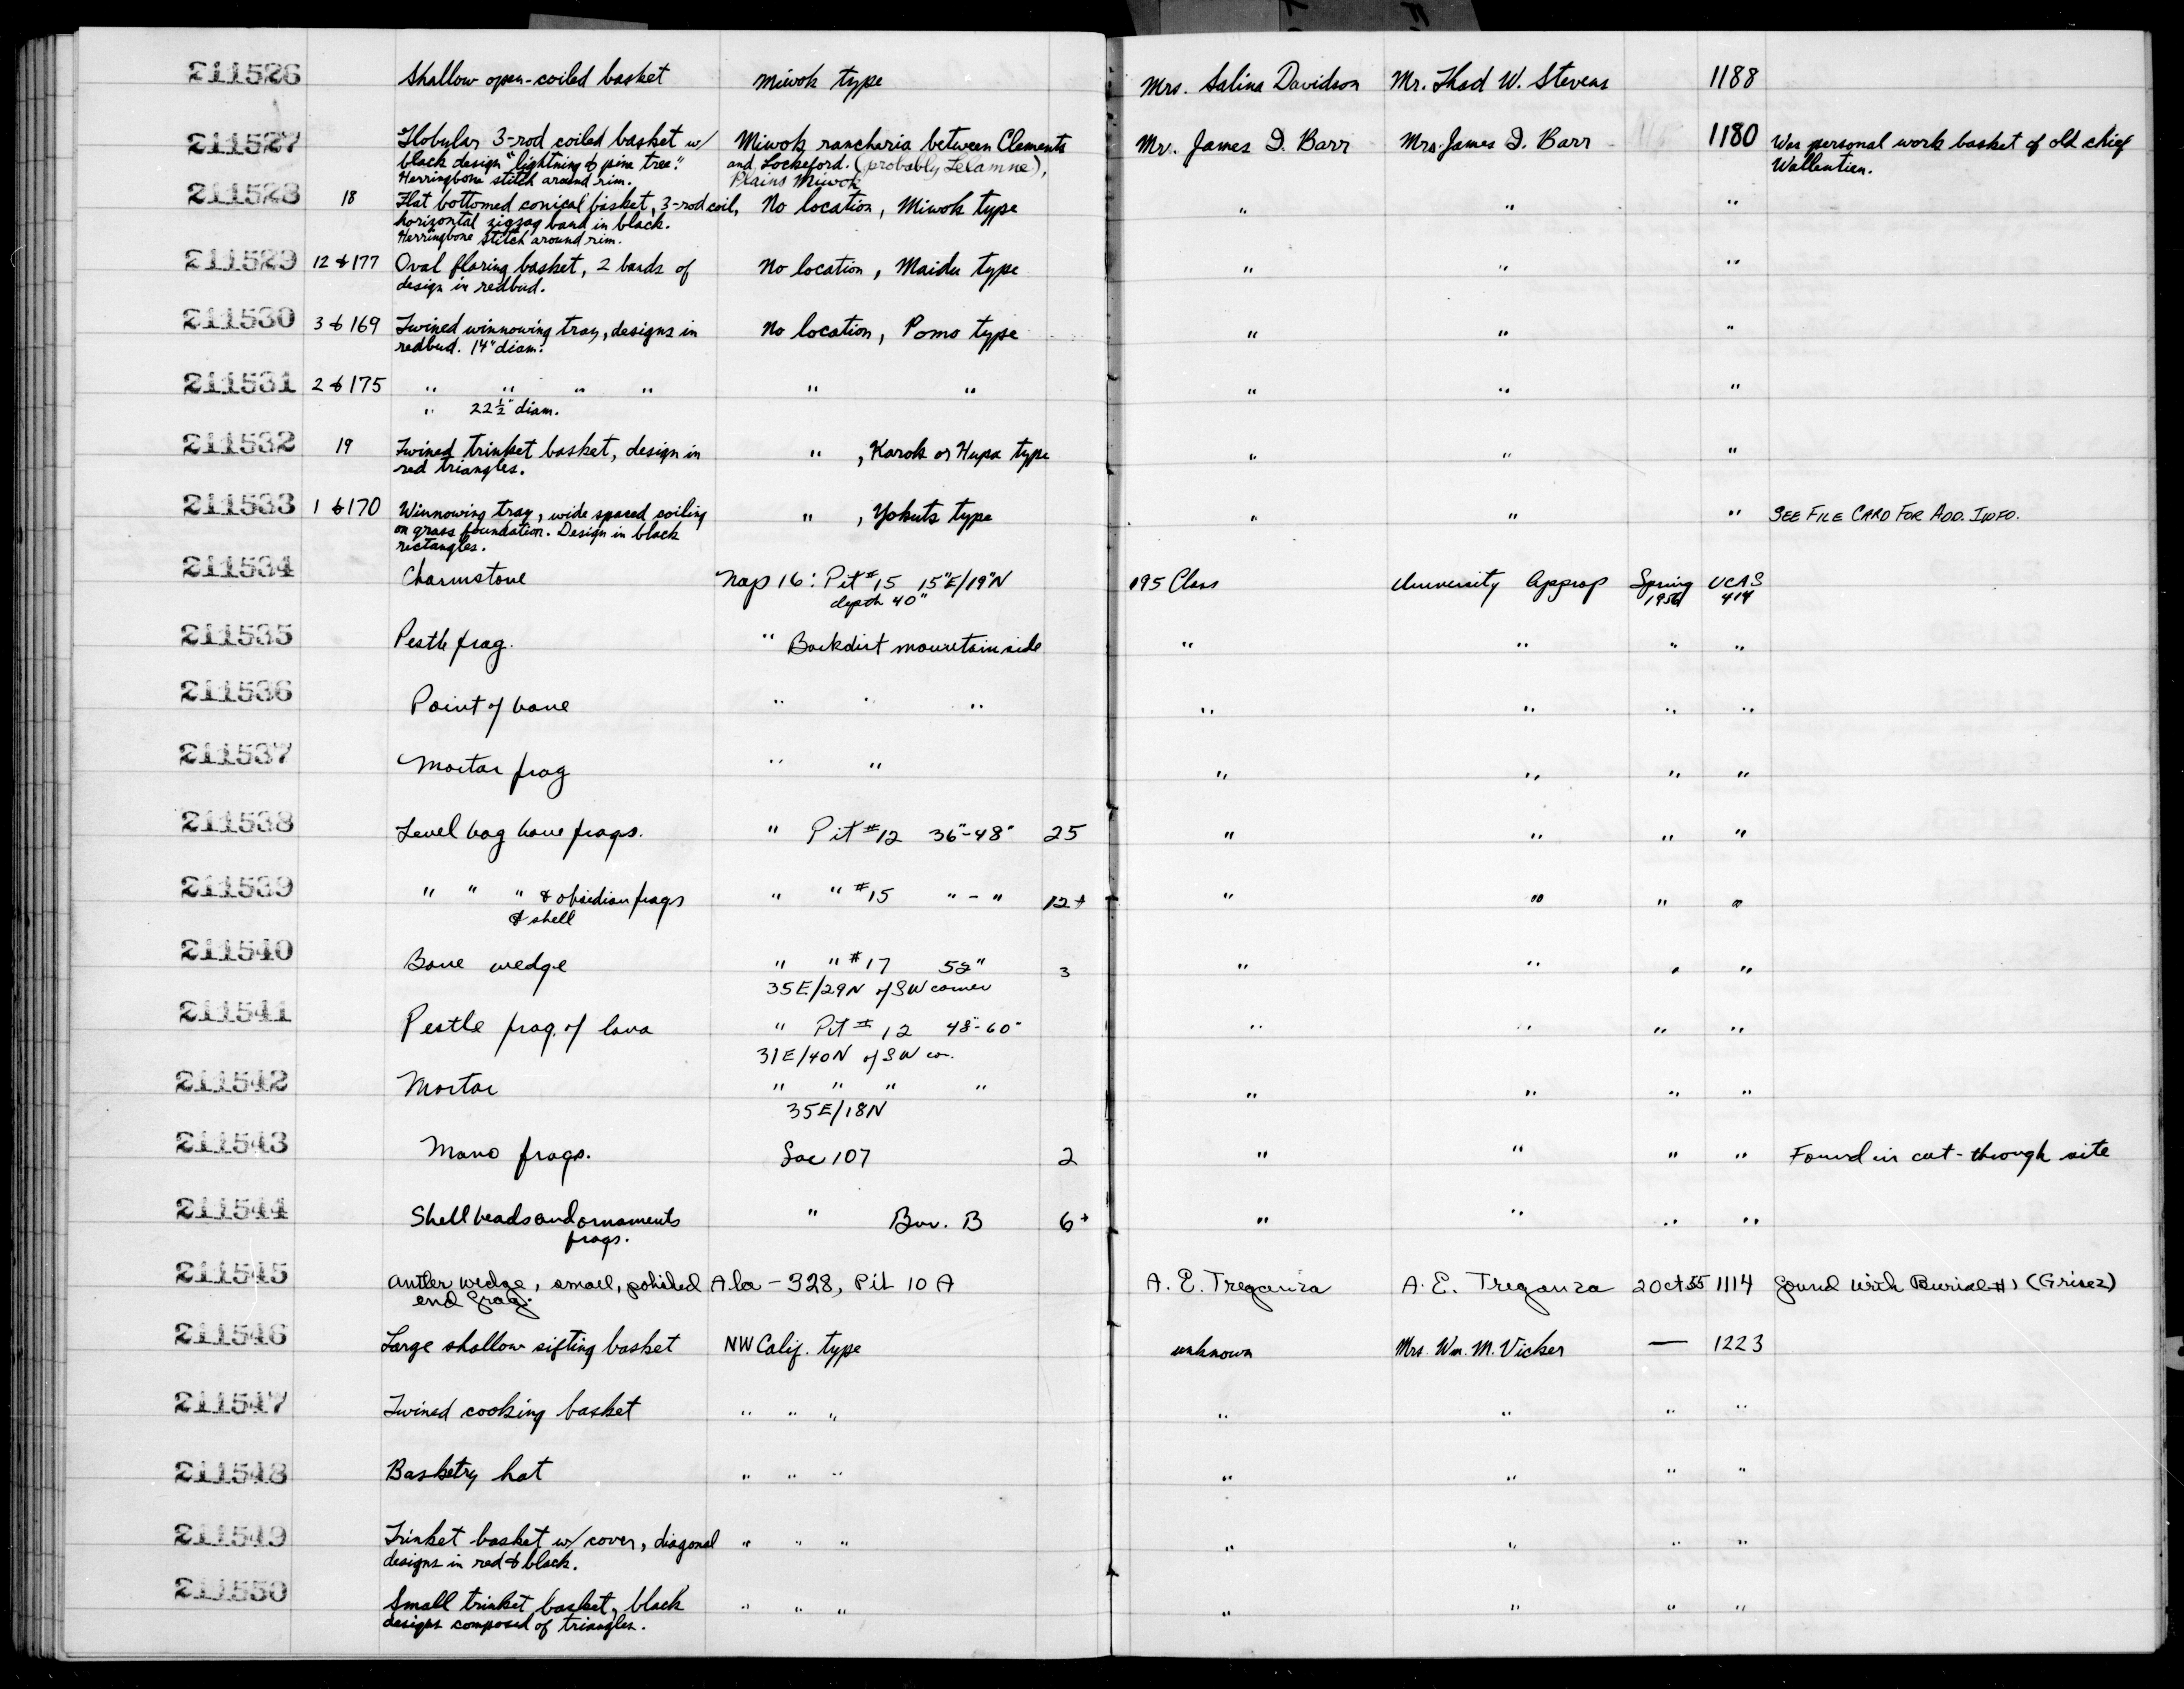 211526 Shallow open-coiled basket Miwok type Mrs. Salina Davidson Mr. Thad W. Stevens 1188
211527 Globular 3-rod coiled basket w/ Miwok rancheria between Clements Mr. James D. Barr Mrs. James D. Barr 1180 Was personal work basket of old chief
black design "lightning & pine tree." and Lockeford. (probably Lelamne), Wallentien.
Herringbone stitch around rim. Plains Miwok
211528 18 Flat bottomed conical basket, 3-rod coil, No location, Miwok type " " "
horizontal zigzag band in black.
Herringbone stitch around rim.
211529 12 & 177 Oval flaring basket, 2 bands of No location, Maidu type " " "
design in redbud.
211530 3 & 169 Twined winnowing tray, designs in No location, Pomo type " " "
redbud. 14" diam.
211531 2 & 175 " " " " " " " " "
" 22½" diam.
211532 19 Twined trinket basket, design in " , Karok or Hupa type " " "
red triangles.
211533 1 & 170 Winnowing tray, wide spaced coiling " , Yokuts type " " " SEE FILE CARD FOR ADD. INFO.
on grass foundation. Design in black
rectangles.
211534 Charmstone Nap 16: Pit #15 15"E/19"N 195 Class University Approp Spring UCAS
depth 40" 1956 414
211535 Pestle frag. " Backdirt mountainside " " " "
211536 Point of bone " " " " " " "
211537 Mortar frag " " " " " "
211538 Level bag bone frags. " Pit #12 36"-48" 25 " " " "
211539 " " " & obsidian frags " " #15 " - " 12+ " " " "
& shell
211540 Bone wedge " " #17 52" 3 " " " "
35E/29N of SW corner
211541 Pestle frag. of lava " Pit # 12 48"-60" " " " "
31E/40N of SW cor.
211542 Mortar " " " " " " " "
35E/18N
211543 Mano frags. Sac 107 2 " " " " Found in cut-through site
211544 Shell beads and ornaments " Bur. B 6+ " " " "
frags.
211545 Antler wedge, small, polished Ala - 328, Pit 10 A A. E. Treganza A. E. Treganza 20 Oct 55 1114 found with Burial #1 (Grisez)
end frag.
211546 Large shallow sifting basket NW Calif. type unknown Mrs. Wm. M. Vicker — 1223
211547 Twined cooking basket " " " " " " "
211548 Basketry hat " " " " " " "
211549 Trinket basket w/ cover, diagonal " " " " " " "
designs in red & black.
211550 Small trinket basket, black " " " " " " "
designs composed of triangles.